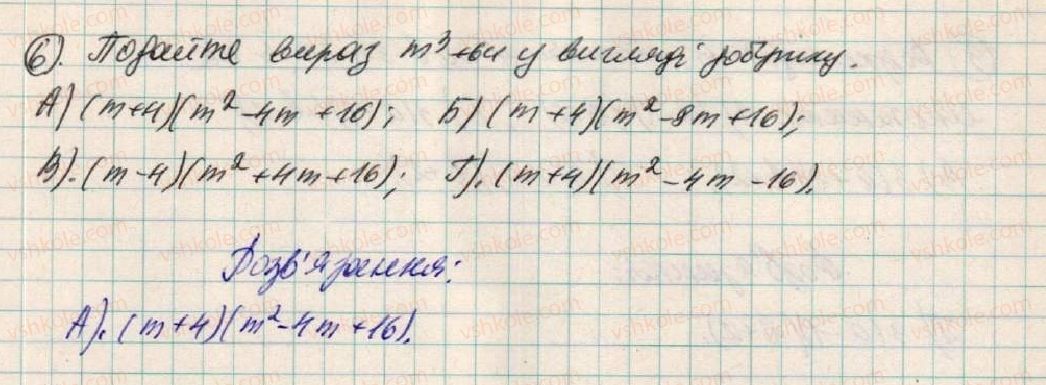 6). Подайте вираз m³+64 у вигляді добутку.
А) (m+4)(m²-4m+16); Б) (m+4)(m²-8m+16);
В). (m-4)(m²+4m+16); Г). (m+4)(m²-4m-16).
Розв'язання:
А). (m+4)(m²-4m+16).
vshkole.com